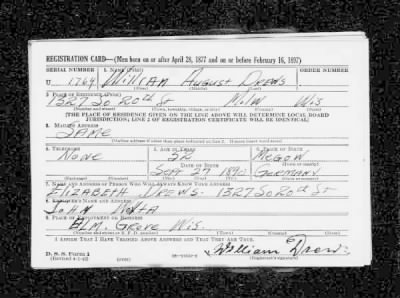 REGISTRATION CARD—(Men born on or after April 28, 1877 and on or before February 16, 1897)
SERIAL NUMBER 1. NAME (Print) ORDER NUMBER
U 1764 William August Drews
(First) (Middle) (Last)
2. PLACE OF RESIDENCE (Print)
1327 So 20th St Milw Wis
(Number and street) (Town, township, village, or city) (County) (State)
[THE PLACE OF RESIDENCE GIVEN ON THE LINE ABOVE WILL DETERMINE LOCAL BOARD
JURISDICTION; LINE 2 OF REGISTRATION CERTIFICATE WILL BE IDENTICAL]
3. MAILING ADDRESS
SAME
(Mailing address if other than place indicated on line 2. If same insert word same)
4. TELEPHONE 5. AGE IN YEARS 6. PLACE OF BIRTH
None 52 Megow
DATE OF BIRTH (Town or county)
Sept 27 1890 Germany
(Exchange) (Number) (Mo.) (Day) (Yr.) (State or country)
7. NAME AND ADDRESS OF PERSON WHO WILL ALWAYS KNOW YOUR ADDRESS
Elizabeth Drews- 1327 So 20th St
8. EMPLOYER'S NAME AND ADDRESS
John
9. PLACE OF EMPLOYMENT OR BUSINESS
Elm. Grove Wis.
(Number and street or R. F. D. number) (Town) (County) (State)
I AFFIRM THAT I HAVE VERIFIED ABOVE ANSWERS AND THAT THEY ARE TRUE.
D. S. S. Form 1
William Drews
(Registrant's signature)